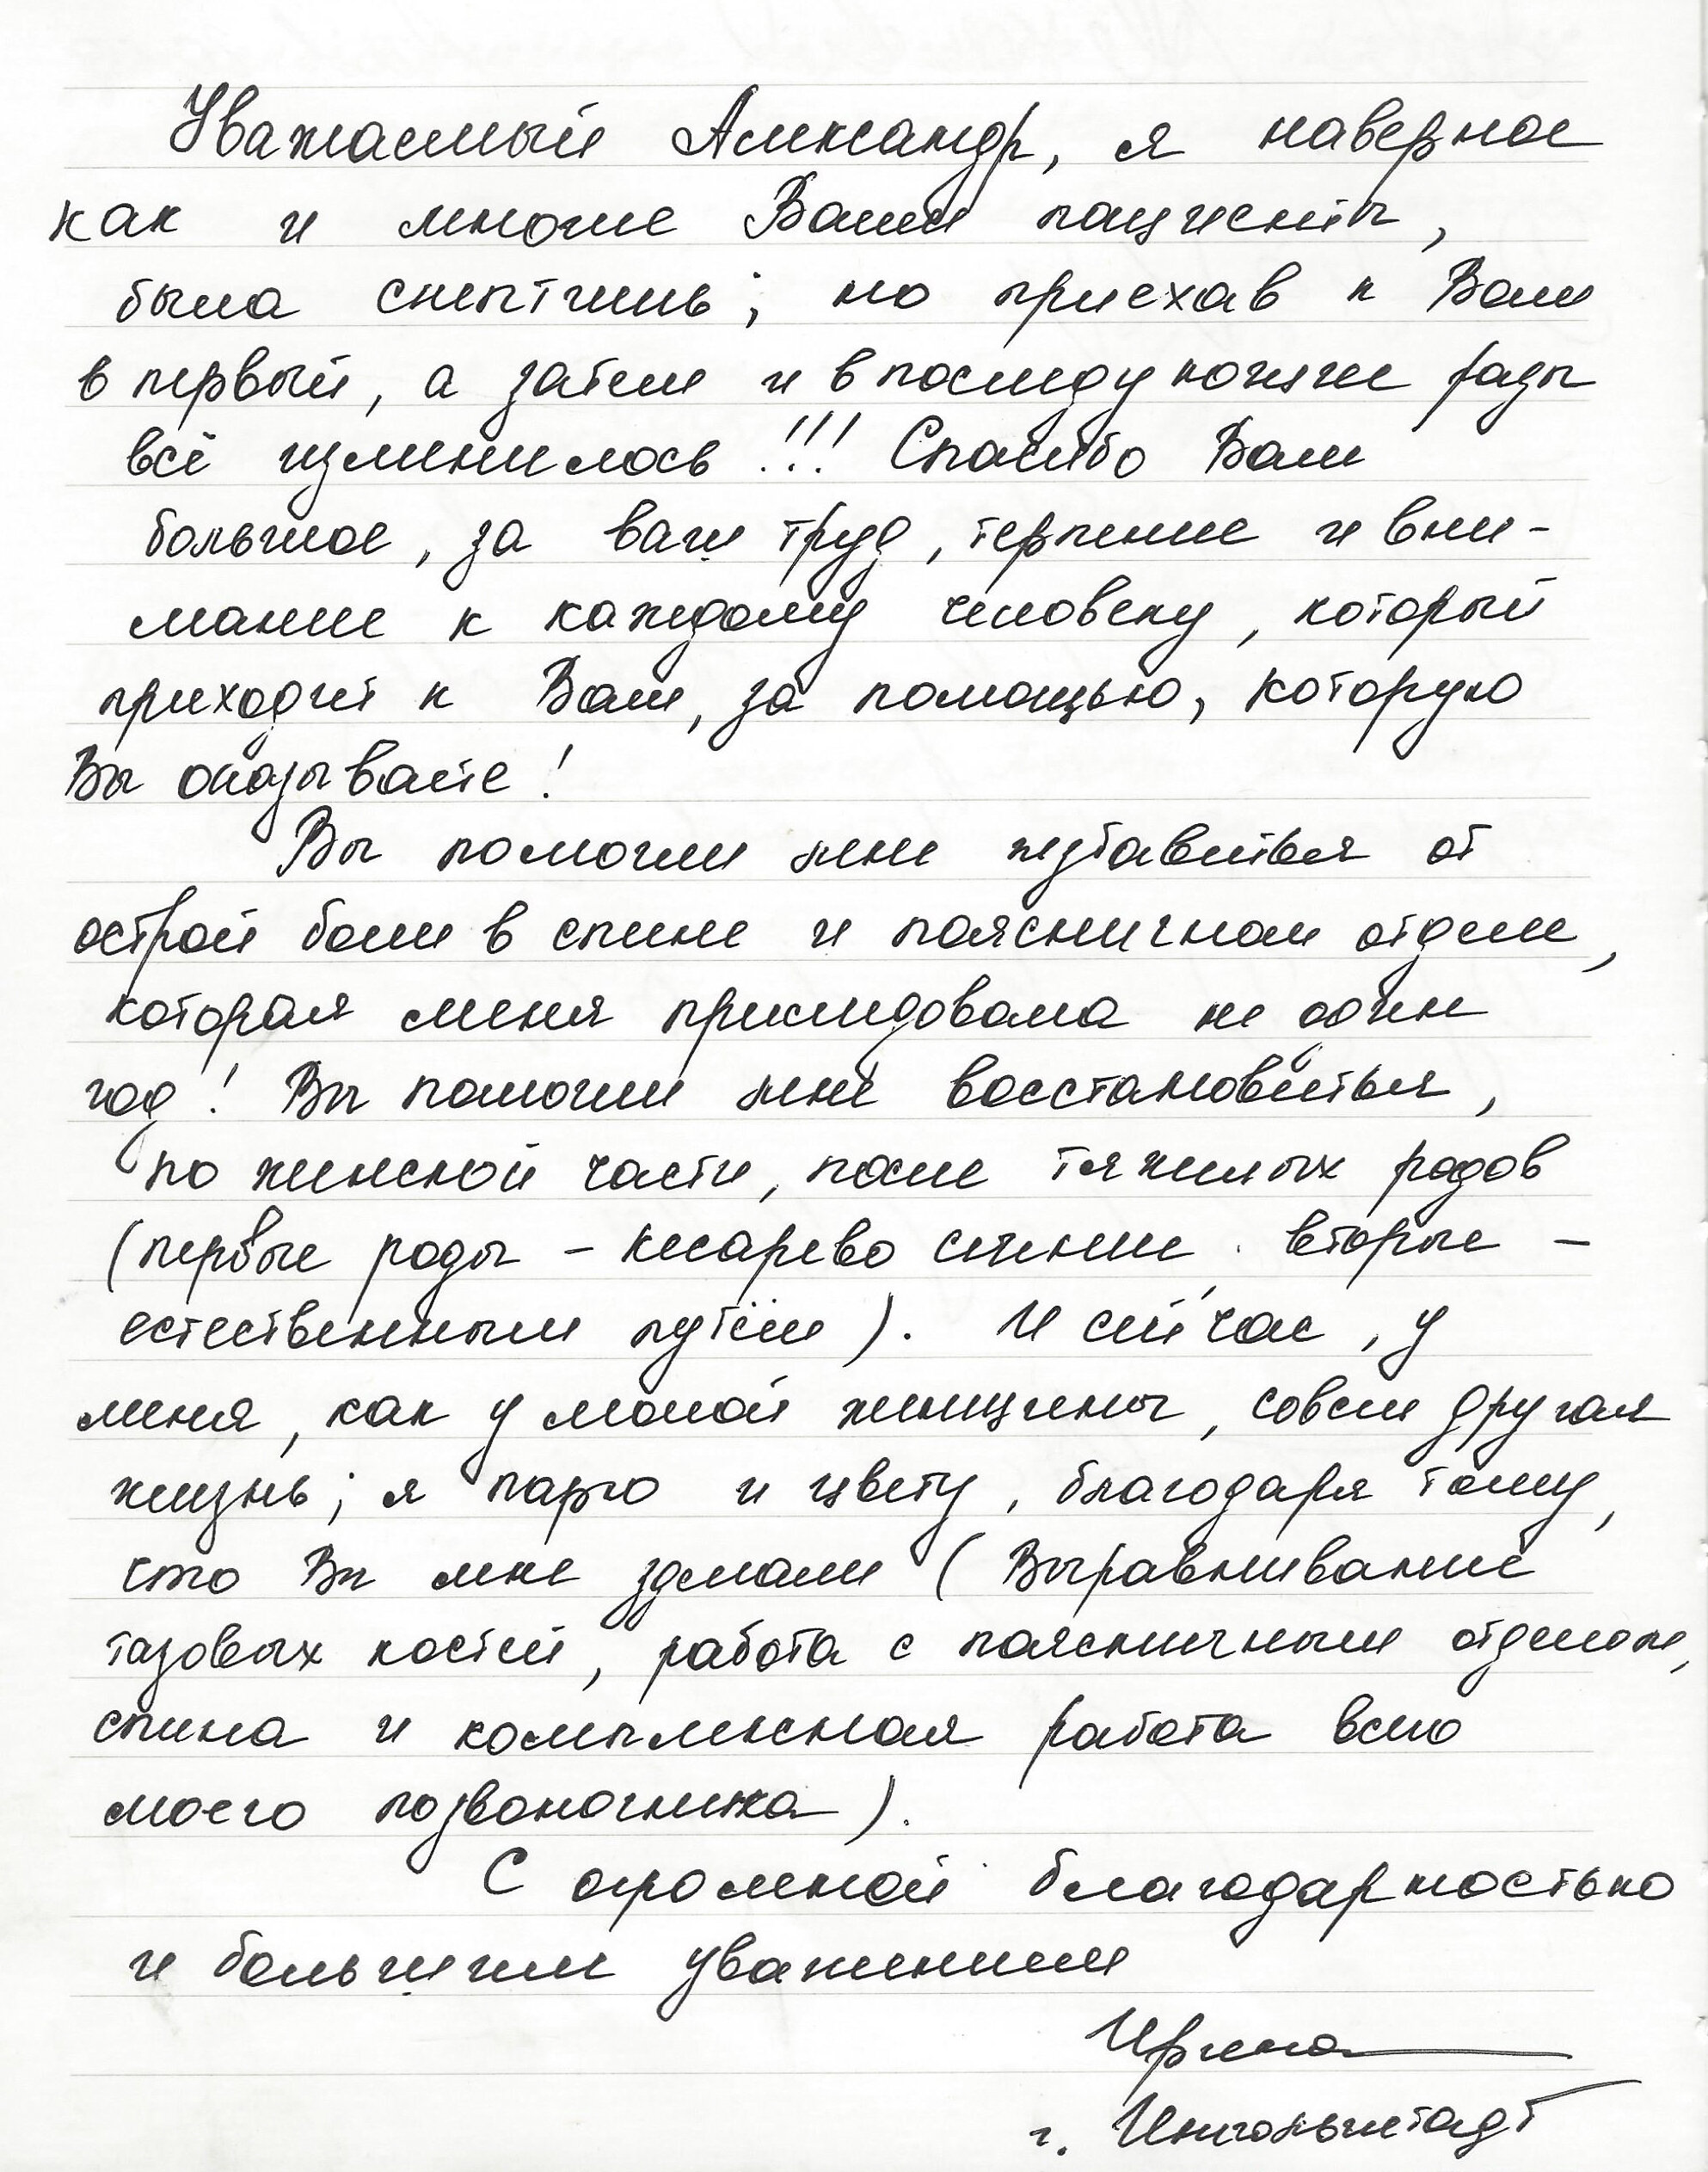 Уважаемый Александр, я наверное
как и многие Ваши пациенты,
была скептик; но приехав к Вам
в первый, а затем и в последующие разы
всё изменилось!!! Спасибо Вам
большое, за ваш труд, терпение и вни-
мание к каждому человеку, который
приходит к Вам, за помощью, которую
Вы оказываете!
Вы помогли мне избавиться от
острой боли в спине и поясничном отделе,
которая меня приследовала не один
год! Вы помогли мне восстановиться,
по женской части, после тяжелых родов
(первые роды – кесарево сечение, вторые –
естественным путём). И сейчас, у
меня, как у молодой женщины, совсем другая
жизнь; я парю и цвету, благодаря тому,
что Вы мне зделали (Выравнивание
тазовых костей, работа с поясничным отделом,
спина и комплексная работа всего
моего позвоночника).
С огромной благодарностью
и большим уважением
Ирина
г. Ингольштадт